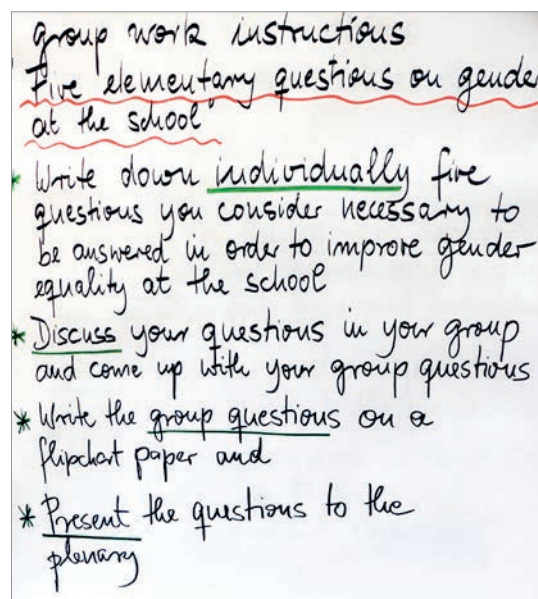 group work instructions
Five elementary questions on gender
at the school
* Write down individually five
questions you consider necessary to
be answered in order to improve gender
equality at the school
* Discuss your questions in your group
and come up with your group questions
* Write the group questions on a
flipchart paper and
* Present the questions to the
plenary